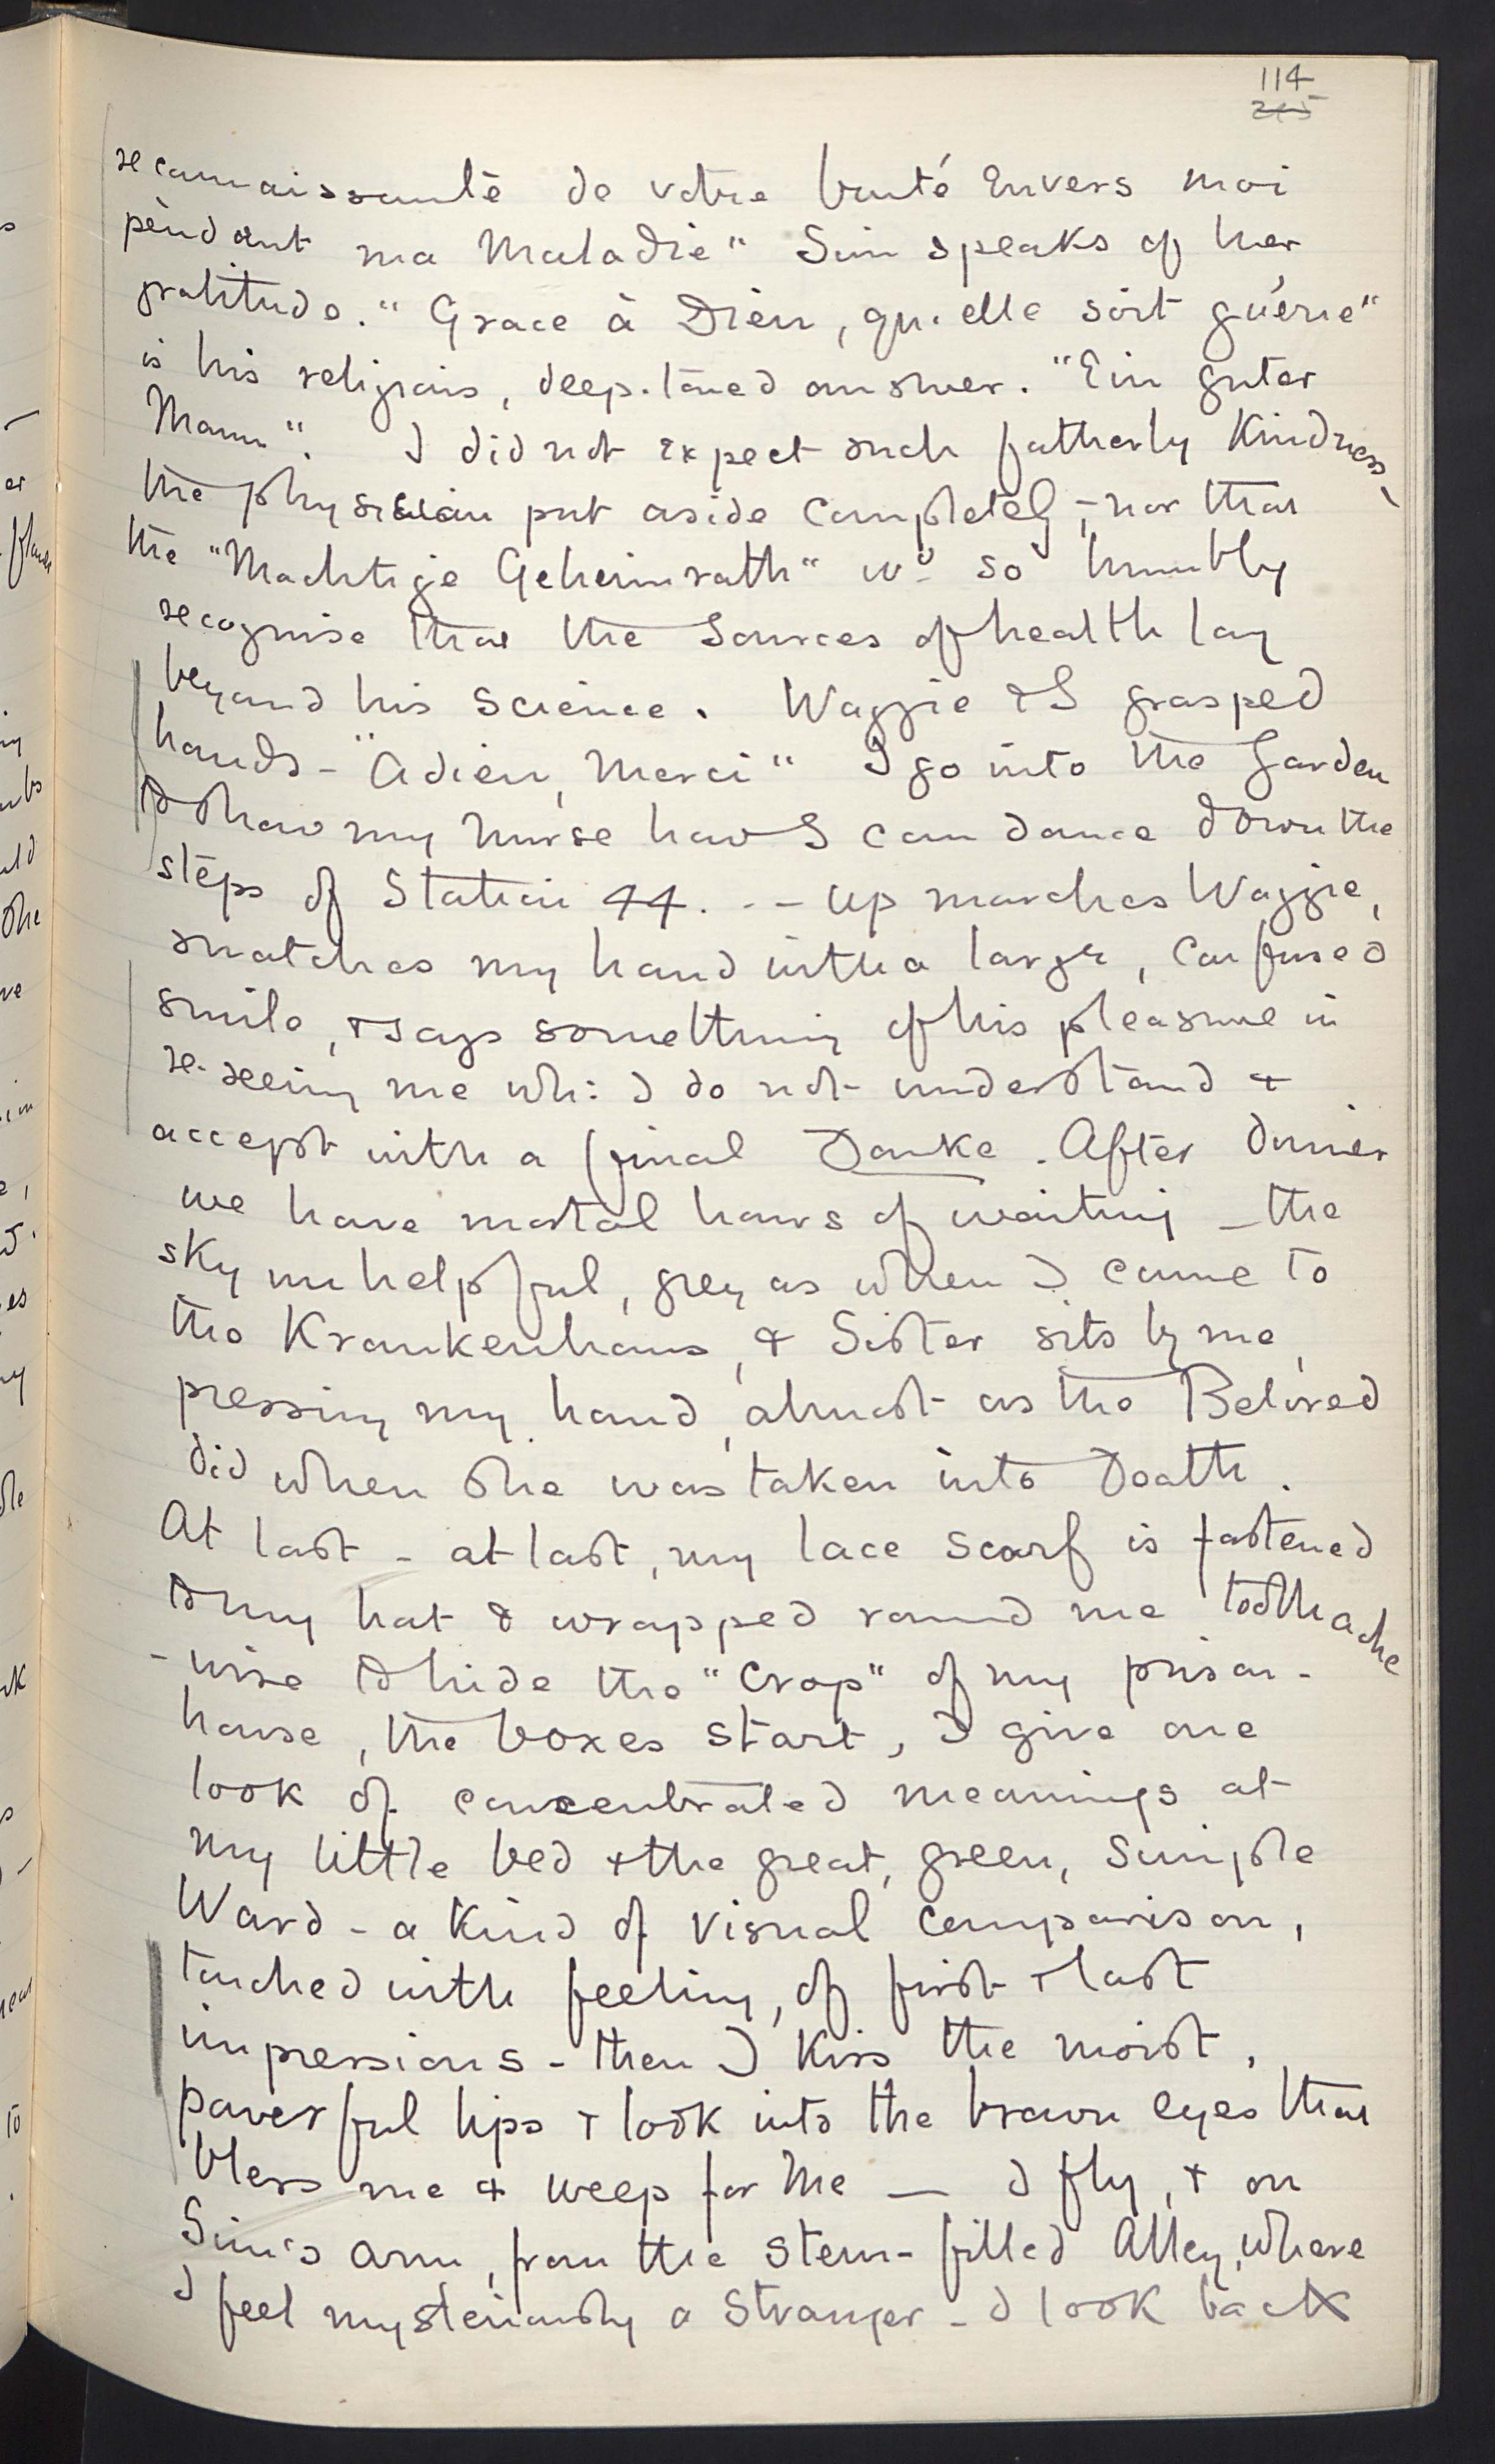 114
215
reconnaissante de votre bonté Envers moi
pendant ma Maladie" Sim speaks of her
gratitude. "Grace à Dieu, qu'elle soit guérie"
is his religious, deep-toned answer. "Ein guter
Mann". I did not expect such fatherly Kindness –
the physician put aside completely – nor that
the "Machtige Geheimrath" wd so humbly
recognise that the Sources of health lay
beyond his Science. Waggie & I grasped
hands – "Adieu, Merci" I go into the Garden
to show my Nurse how I can dance down the
steps of Station 44. - - Up marches Waggie,
snatches my hand with a large, confused
smile, & says something of his pleasure in
re-seeing me wh: I do not understand &
accept with a final Danke. After dinner
we have mortal hours of waiting – the
sky unhelpful, grey as when I came to
the Krankenhaus, & Sister sits by me,
pressing my hand, almost as the Beloved
did when she was taken into Death.
At last – at last, my lace scarf is fastened
to my hat & wrapped round me toothache
-wise to hide the "Crop" of my prison-
house, the boxes start, I give one
look of concentrated meanings at
my little bed & the great, green, Simple
Ward – a Kind of visual comparison,
touched with feeling, of first & last
impressions – then I kiss the moist,
powerful lips & look into the brown eyes that
bless me & weep for Me — I fly, & on
Sim's arm, from the Stem-filled Alley, where
I feel mysteriously a Stranger – I look back